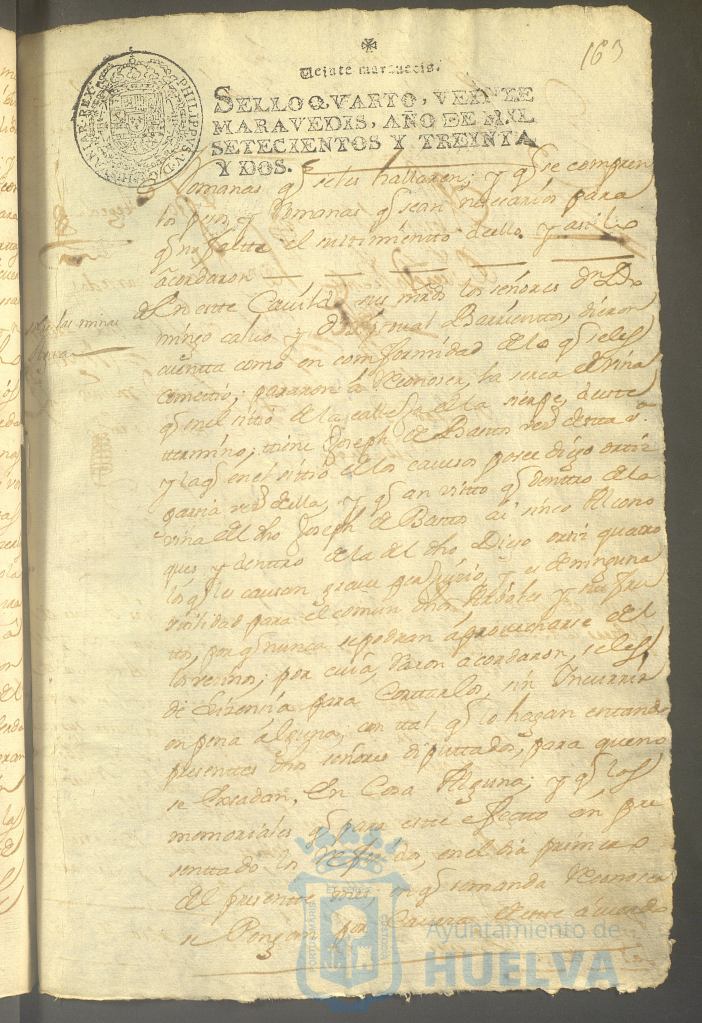 163
Veinte marauedis.
SELLO QVARTO, VEINTE
MARAVEDIS, AÑO DE MIL
SETECIENTOS Y TREINTA
Y DOS.
PHILIPPVS V D G HISPANIAR REX
Romanas q̃ se les hallaren; y q̃ se compren
los pesos y Romanas q̃ sean necesarios para
q̃ no falte el surtimiento dello y asi lo
acordaron
En este Cavildo sus mrds los señores Dn Do
mingo calvo y Barrientos, dieron
cuentta como en comformidad de lo q̃ se les
cometio; pasaron a Reconoser, la serca de viña
q̃ en el sittio de la cavesa de la sierpe, deste
ttermino; tiene Joseph de Bastos vezº desta vª
y la q̃ en el sittio de los posee Diego orttiz
garsia vezº della, y q̃ an visto q̃ denttro de la
viña del dho Joseph de Bastos ai sinco Alcono
ques y denttro de la del dho Diego ortiz quatro
los q̃ le causan grave perjuizio, y es de ninguna
utilidad para el comun dhos Arboles y su fru
tto, por q̃ nunca se podran aprovecharse del
los vezinos; por cuia Razon acordaron, se les
de Lizensia para Corttarlos, sin Incurrir
en pena alguna; con ttal q̃ lo hagan esttando
presenttes dhos señores diputtados, para que no
se Exsedan, En Cosa Alguna; y q̃ los
memoriales q̃ para este efecto an pre
senttado los Referidos, en el dia primero
del presentte mes, en q̃ se manda Reconoser
se Pongan por Cavesa deste acuerdo
Ayuntamiento de
HUELVA
PORTUS MARIS